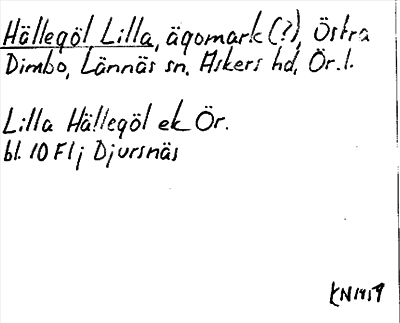 Hällegöl, Lilla, ägomark (?), Östra
Dimbo, Lännäs sn, Askers hd, Ör. l.
Lilla Hällegöl ek Ör.
bl. 10 F1j Djursnäs
KN 1959